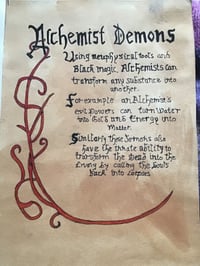 Alchemist Demons
Using metaphysical tools and
Black magic, Alchemists can
transform any substance into
another.
For example an Alchemist's
evil Powers can turn Water
into Gold and Energy into
Matter.
Similarly these Demons also
have the innate ability to
transform the Dead into the
Living by calling the Souls
Back into Corpses